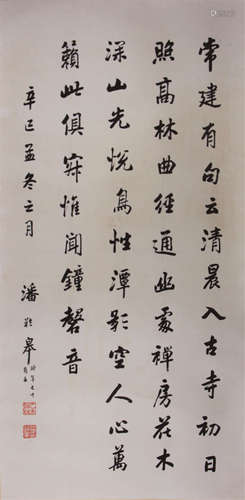 常建有句云清晨入古寺初日
照高林曲徑通幽處禪房花木
深山光悅鳥性潭影空人心萬
籟此俱寂惟聞鐘磬音
辛巳孟冬之月
潘齡皋